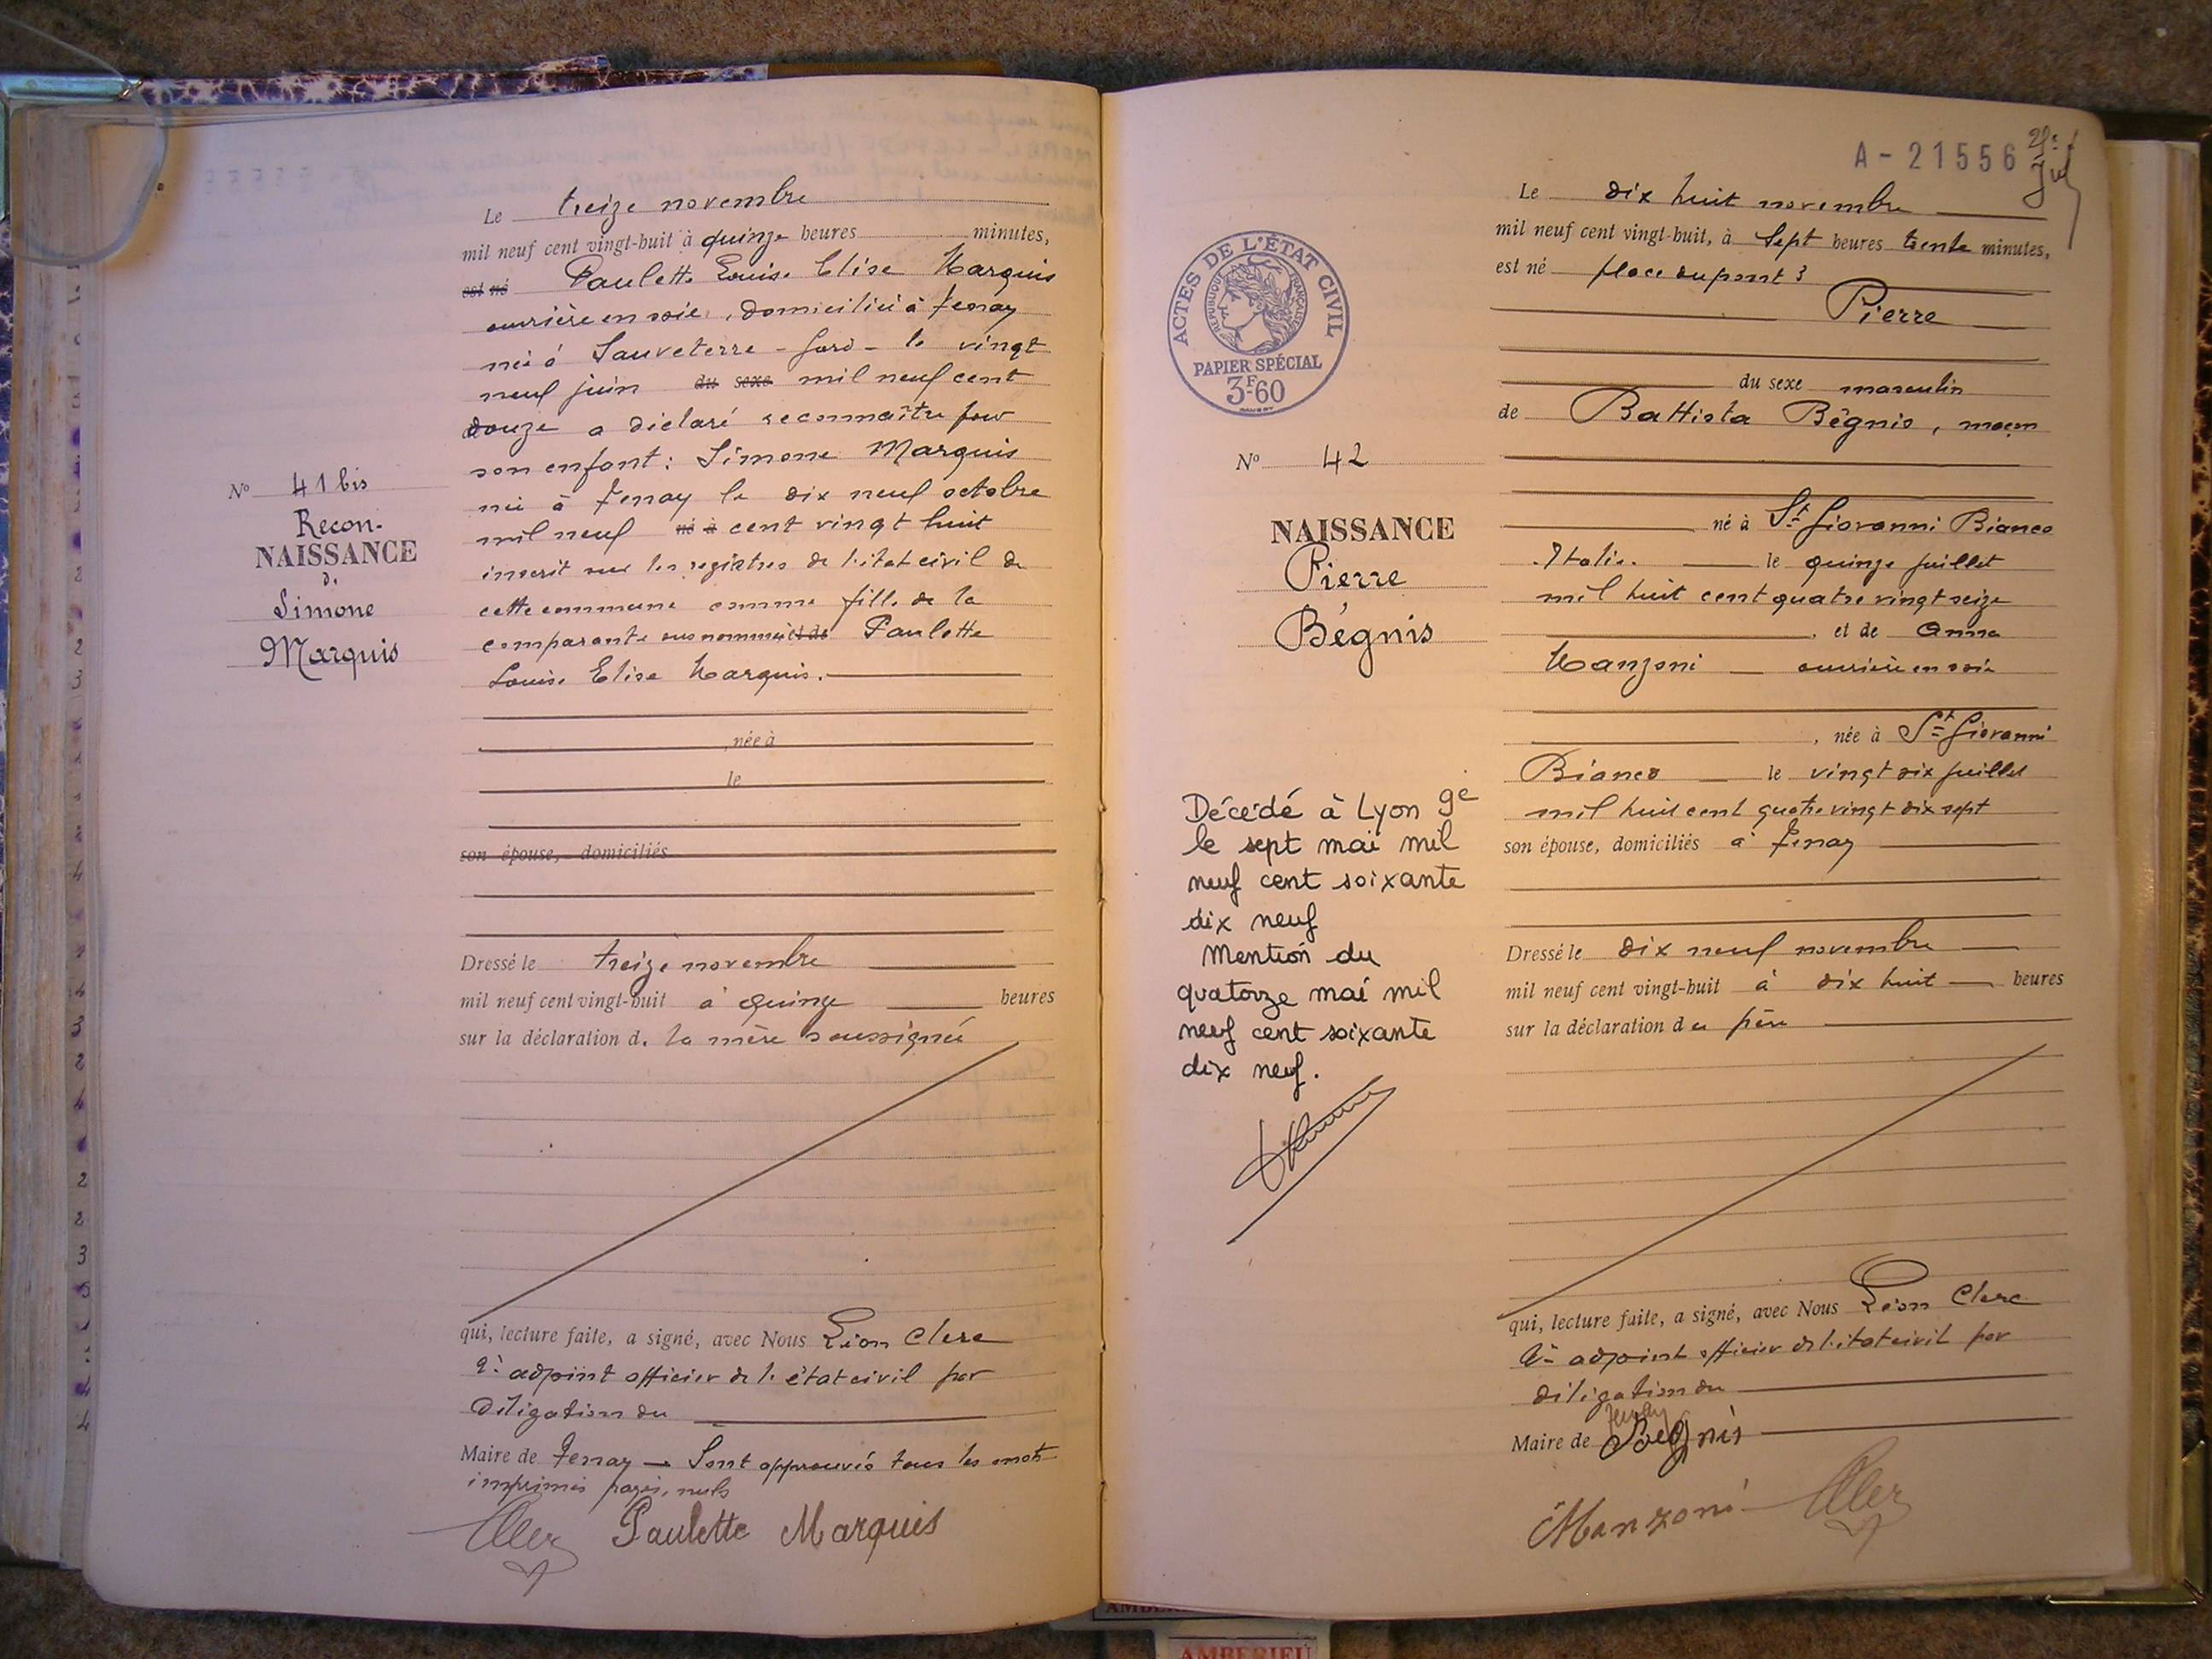 Le treize novembre
mil neuf cent vingt-huit à quinze heures minutes,
est né Paulette Louise Elise Marquis
ouvrière en soie, domiciliée à Tenay
née à Sauveterre - Gard - le vingt
neuf juin du sexe mil neuf cent
douze a déclaré reconnaître pour
son enfant : Simone Marquis
née à Tenay le dix neuf octobre
mil neuf né à cent vingt huit
inscrit sur les registres de l'état civil de
cette commune comme fille de la
comparante sus nommée et de Paulette
Louise Elise Marquis.
, née à
le
son épouse, domiciliés
Dressé le treize novembre
mil neuf cent vingt-huit à quinze heures
sur la déclaration de la mère soussignée
qui, lecture faite, a signé, avec Nous Léon Clerc
adjoint officier de l'état civil par
délégation du
Maire de Tenay - Sont approuvés tous les mots
imprimés rayés, nuls
Paulette Marquis
N° 41 bis
Recon-
NAISSANCE
de
Simone
Marquis
A - 21556
Le dix huit novembre
mil neuf cent vingt-huit, à sept heures trente minutes,
est né place du pont 3
Pierre
du sexe masculin
de Battista Bégnis, maçon
né à St Giovanni Bianco
Italie. le quinze juillet
mil huit cent quatre vingt seize
, et de Anna
Manzoni ouvrière en soie
, née à St Giovanni
Bianco le vingt six juillet
mil huit cent quatre vingt dix sept
son épouse, domiciliés à Tenay
Dressé le dix neuf novembre
mil neuf cent vingt-huit à dix huit heures
sur la déclaration du père
qui, lecture faite, a signé, avec Nous Léon Clerc
adjoint officier de l'état civil par
délégation du
Maire de Tenay
Begnis
Manzoni
ACTES DE L'ÉTAT CIVIL
RÉPUBLIQUE FRANÇAISE
PAPIER SPÉCIAL
3F60
N° 42
NAISSANCE
Pierre
Bégnis
Décédé à Lyon 9e
le sept mai mil
neuf cent soixante
dix neuf
Mention du
quatorze mai mil
neuf cent soixante
dix neuf.
AMBERIEU